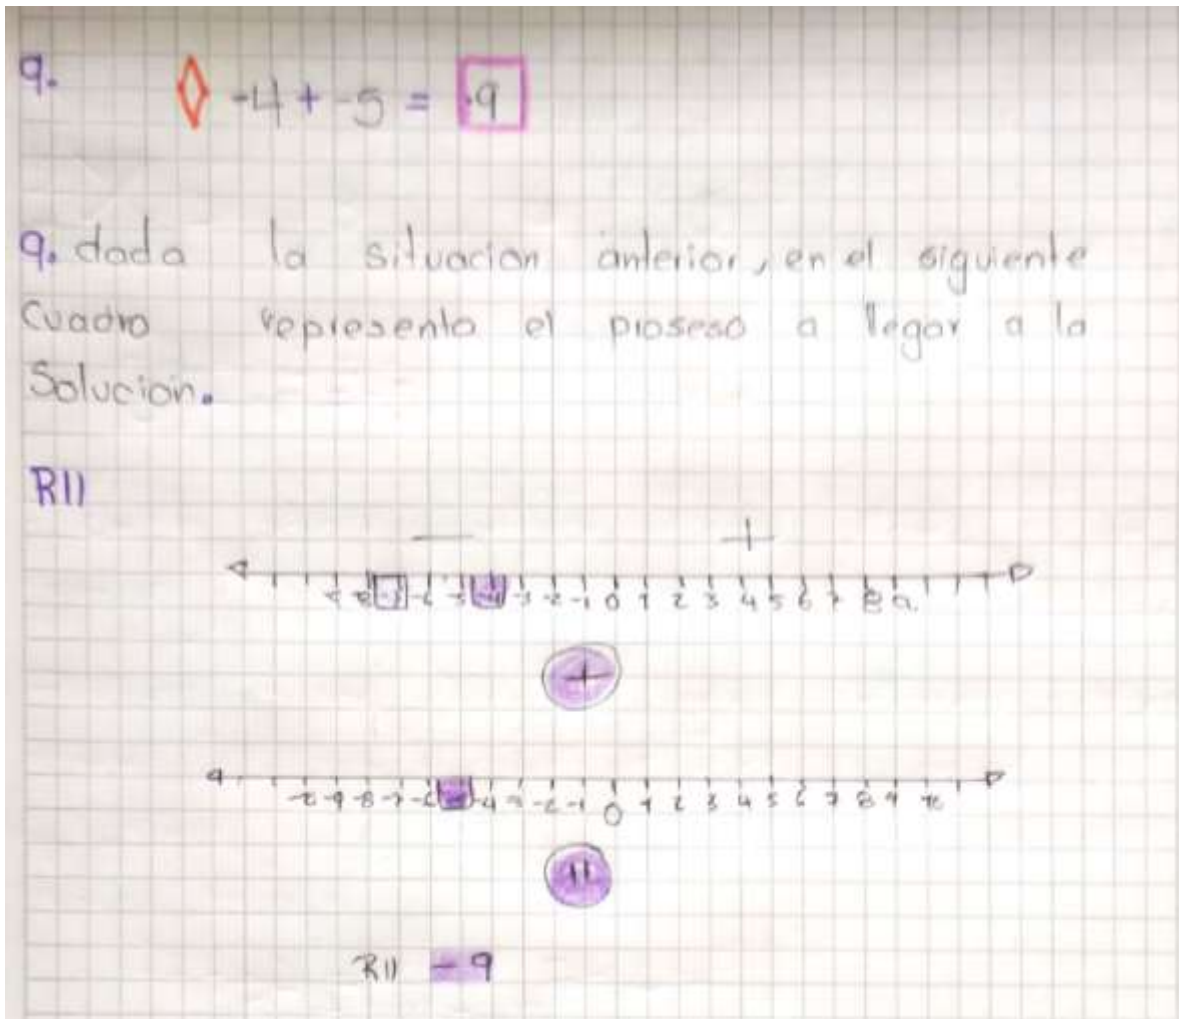 9. -4 + -5 = -9
9. dada la situacion anterior, en el siguiente
Cuadro represento el proseso a llegar a la
Solucion.
R//
- +
-9 -8 -7 -6 -5 -4 -3 -2 -1 0 1 2 3 4 5 6 7 8 9
+
-9 -8 -7 -6 -4 -3 -2 -1 0 1 2 3 4 5 6 7 8 9 10
=
R// -9